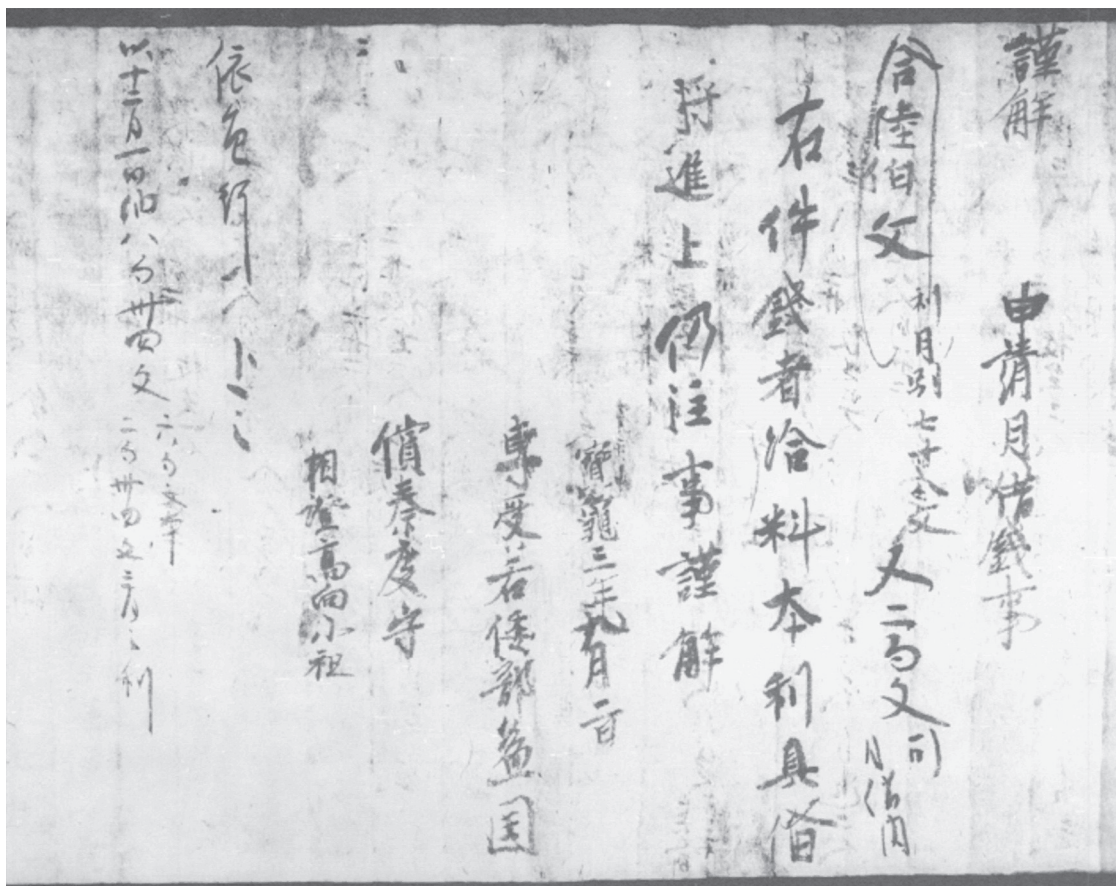 謹解 申請月借錢事
合陸佰文 利月別七十八文 又二百文 司月借内
右件錢者給料本利具備
将進上仍注事謹解
寶龜三年九月二日
専受若倭部益国
償秦度守
相證高向小祖
依 行
以十二月一日納八百卅四文 六百文本 二百卅四文三月之利